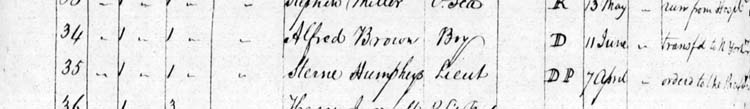 Miller O. Sea R 13 May " run from Hospl
34 " 1 " 1 " " Alfred Brown Boy D 11 June " transfd to N York
35 " 1 " 1 " " Sterne Humphreys Lieut DP 7 April " ordered to the
36 1 3